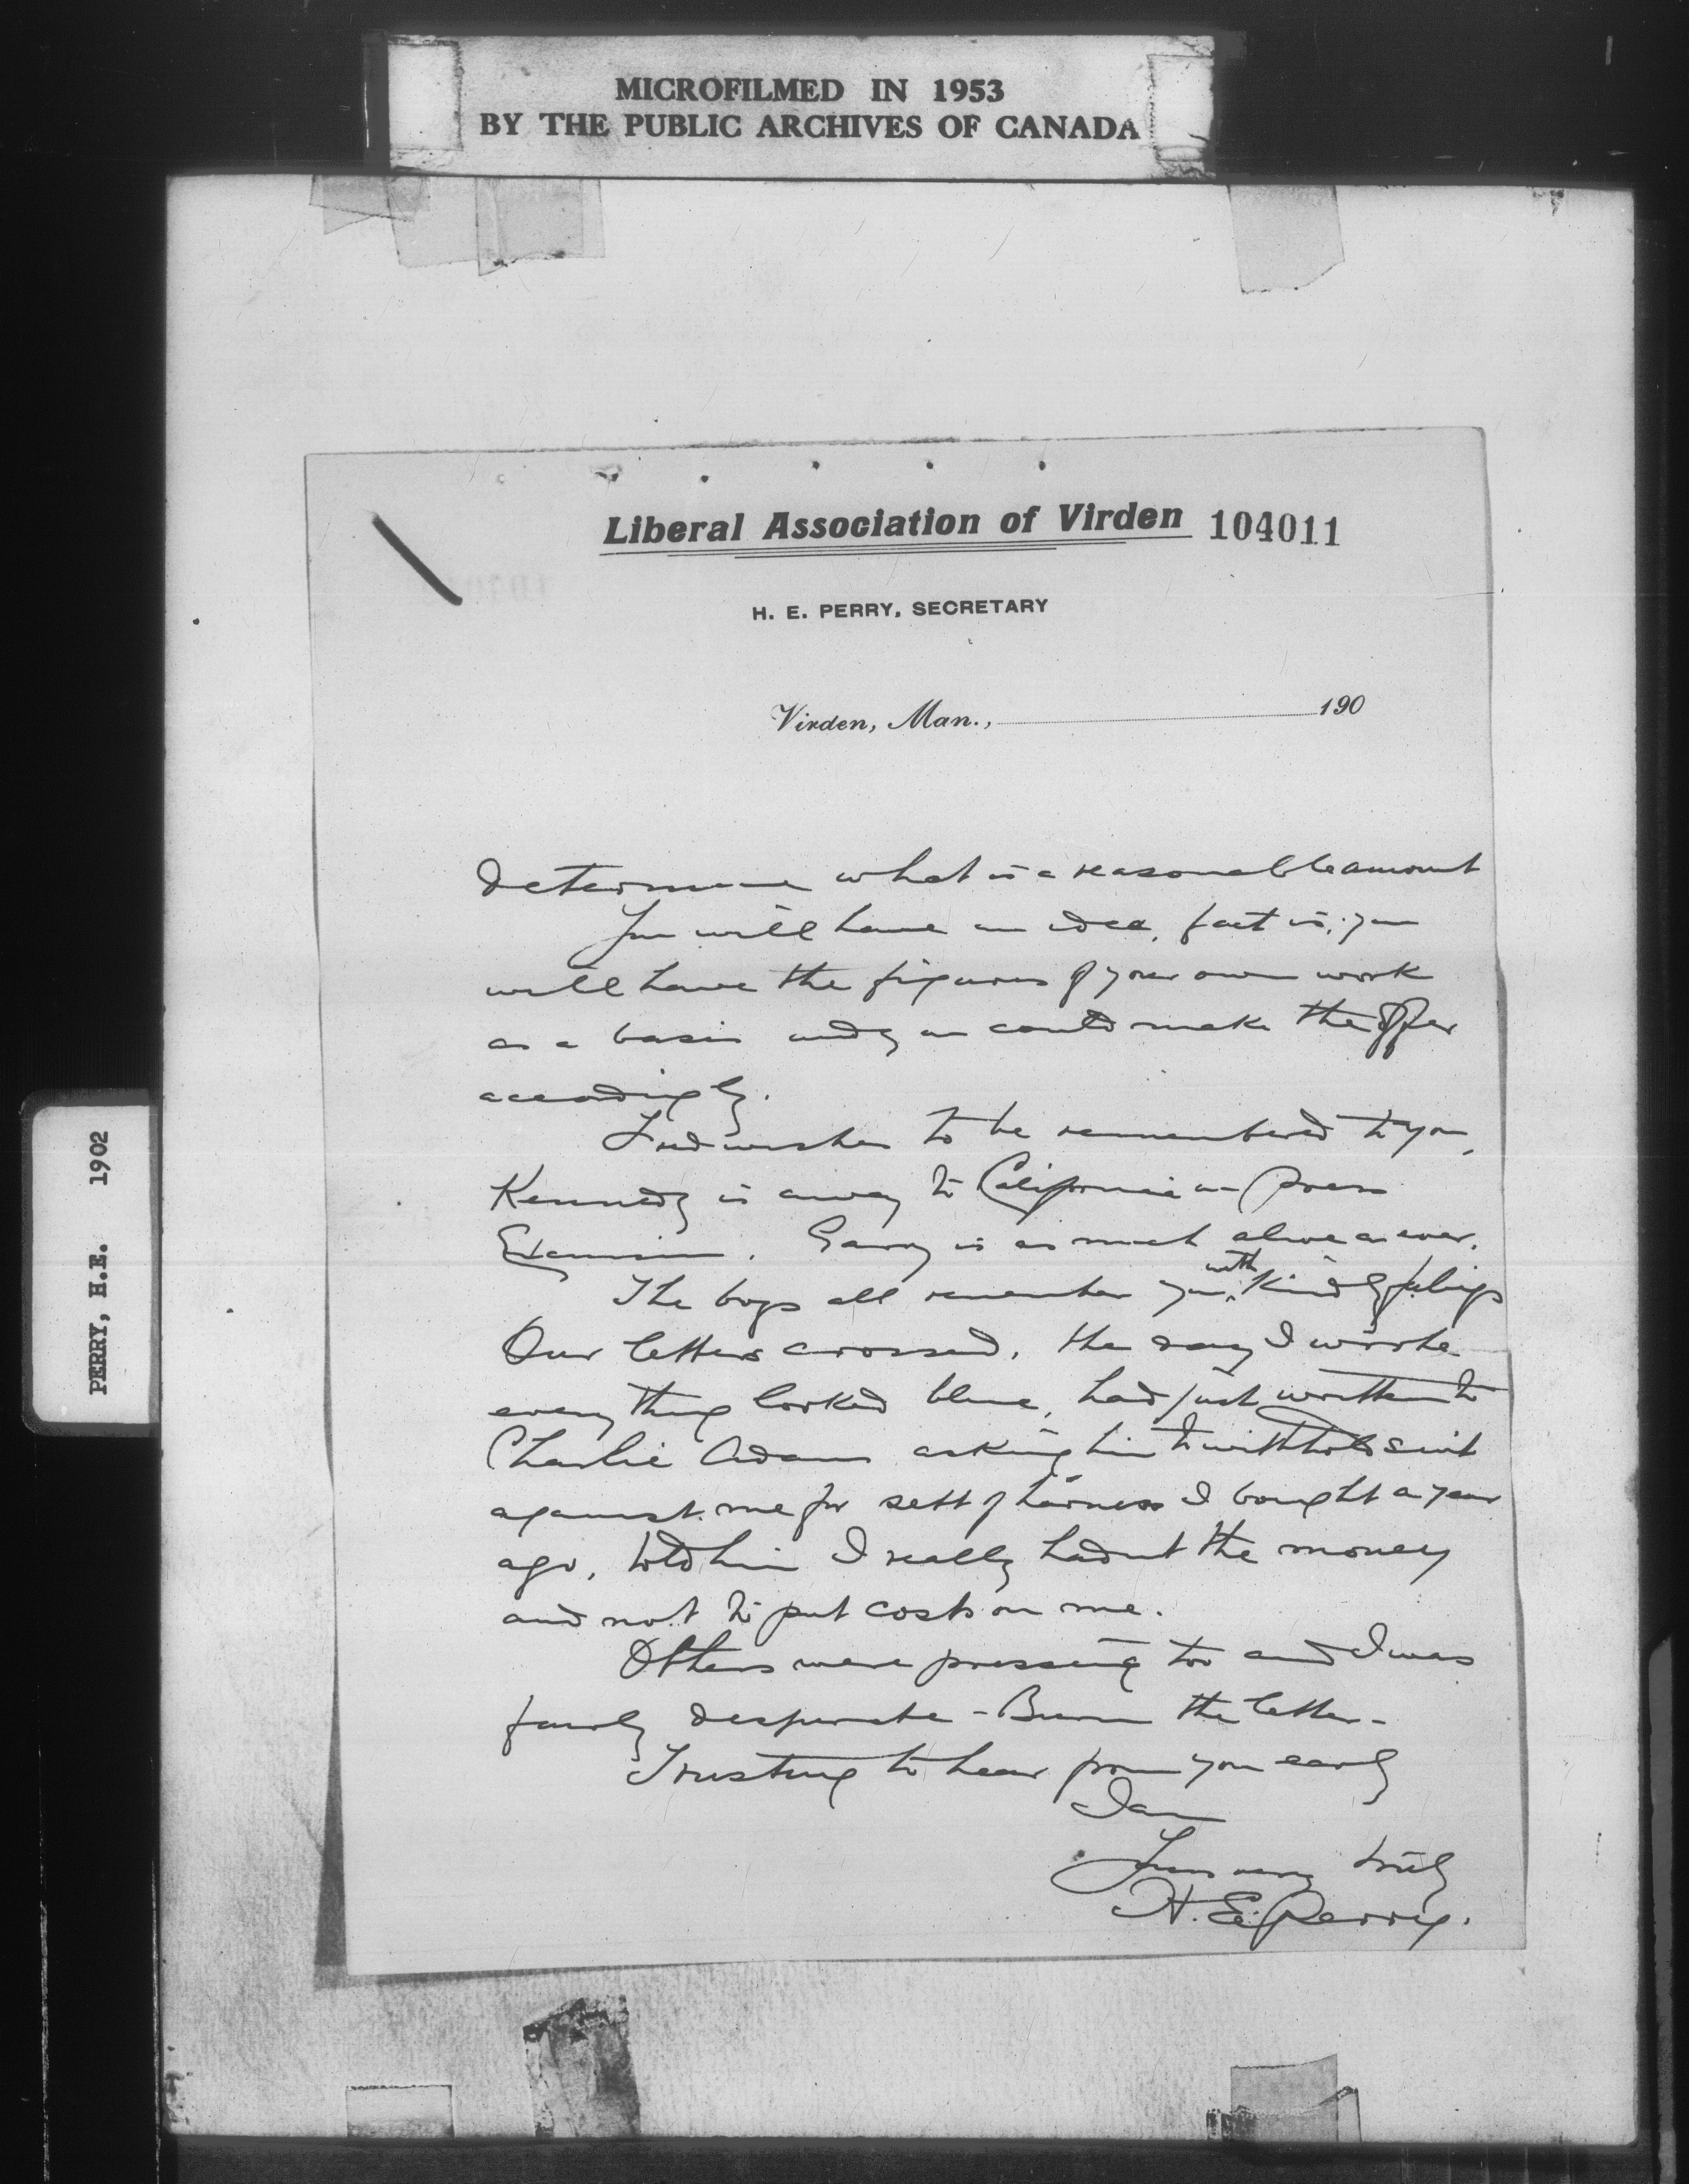 MICROFILMED IN 1953
BY THE PUBLIC ARCHIVES OF CANADA
Liberal Association of Virden 104011
H. E. PERRY, SECRETARY
Virden, Man., 190
determine what is a reasonable amount
You will have an idea, fact is, you
will have the figures of your own work
as a basis and you could make the offer
accordingly.
Fred wishes to be remembered to you,
Kennedy is away to California on Press
Excursion. is as much alive as ever.
The boys all remember you with kindly feelings
Our letters crossed, the day I wrote
everything looked blue, had just written to
Charlie Adams asking him to withhold suit
against me for sett of harness I bought a year
ago, told him I really hadnt the money
and not to put costs on me.
Others were pressing too and I was
fairly desperate - Burn the letter -
Trusting to hear from you early
I am
Yours very truly
H. E. Perry.
PERRY, H.E. 1902